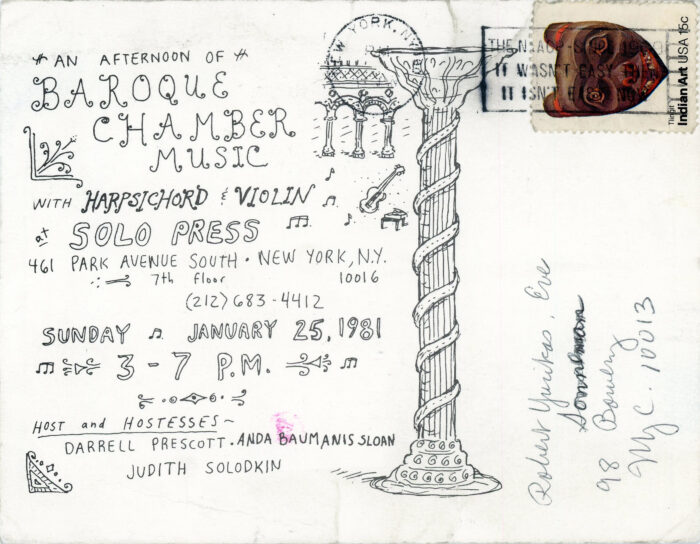 AN AFTERNOON OF
BAROQUE
CHAMBER
MUSIC
WITH HARPSICHORD & VIOLIN
at SOLO PRESS
461 PARK AVENUE SOUTH · NEW YORK, N.Y.
7th floor 10016
(212) 683-4412
SUNDAY JANUARY 25, 1981
3-7 P.M.
HOST and HOSTESSES~
DARRELL PRESCOTT · ANDA BAUMANIS SLOAN
JUDITH SOLODKIN
NEW YORK, N.Y.
THE 1980
IT WASN'T EASY THEN
IT ISN'T EASY NOW
Indian Art USA 15c
Robert Yarikas, Eve
Sonneman
98 Bowery
NYC. 10013